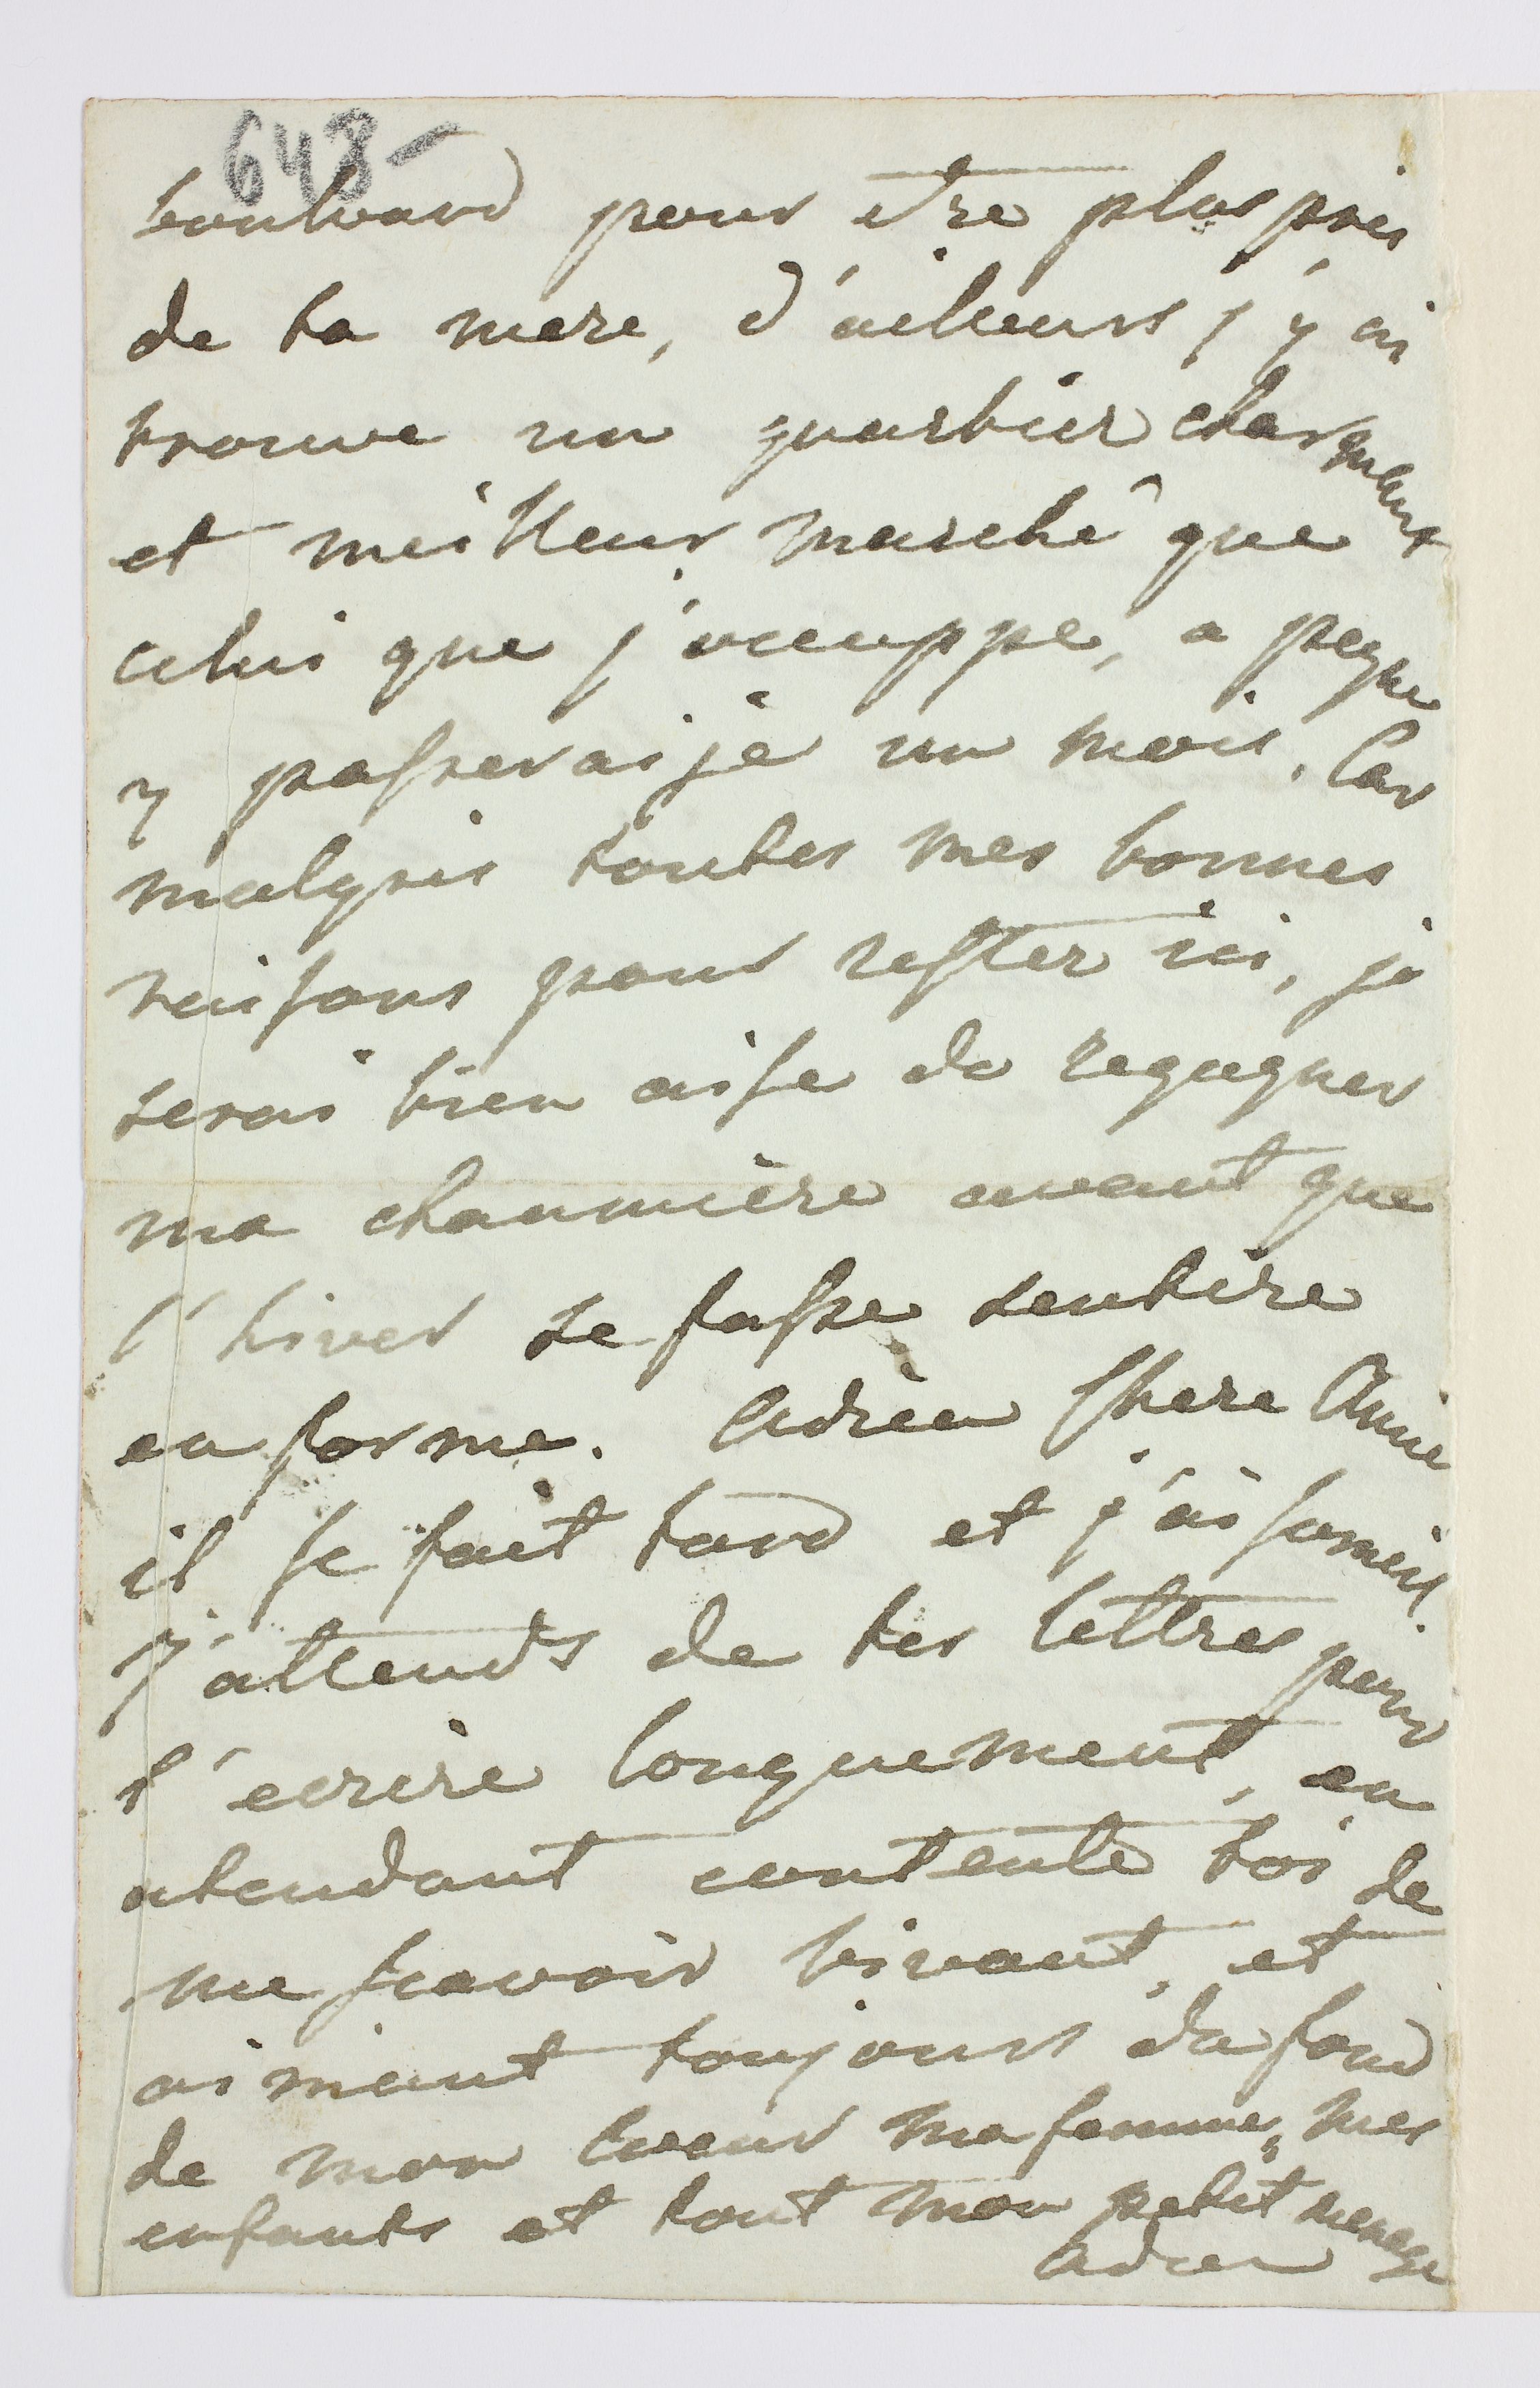 648-
boulvard pour etre plus près
de ta mere, d'ailleurs j'y ai
trouve un quartier charmant
et meilleur marché que
celui que j'occuppe, a peyne
y passerai je un mois. Car
malgrès toutes mes bonnes
raisons pour rester ici, je
serai bien aise de regagner
ma chaumière avant que
l'hiver se fasse sentire
en forme. Adieu Chere Amie
il se fait tard et j'ai someil.
J'attends de tes lettres pour
t'ecrire longuement, en
atendant contente toi de
me scavoir vivant, et
aimant toujours du fond
de mon coeur ma femme, mes
enfants et tout mon petit menage
Adieu